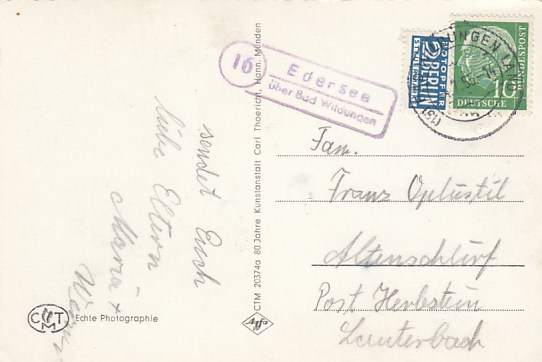 sendet Euch
liebe Eltern
Maria +
CTM
Echte Photographie
CTM 20374a 80 Jahre Kunstanstalt Carl Thoericht, Hann. Münden
Agfa
16
Edersee
über Bad Wildungen
NOTOPFER
2
BERLIN
STEUERMARKE
10
DEUTSCHE
BUNDESPOST
Fam.
Franz Oplustil
Altenschlirf
Post Herbstein
Lauterbach